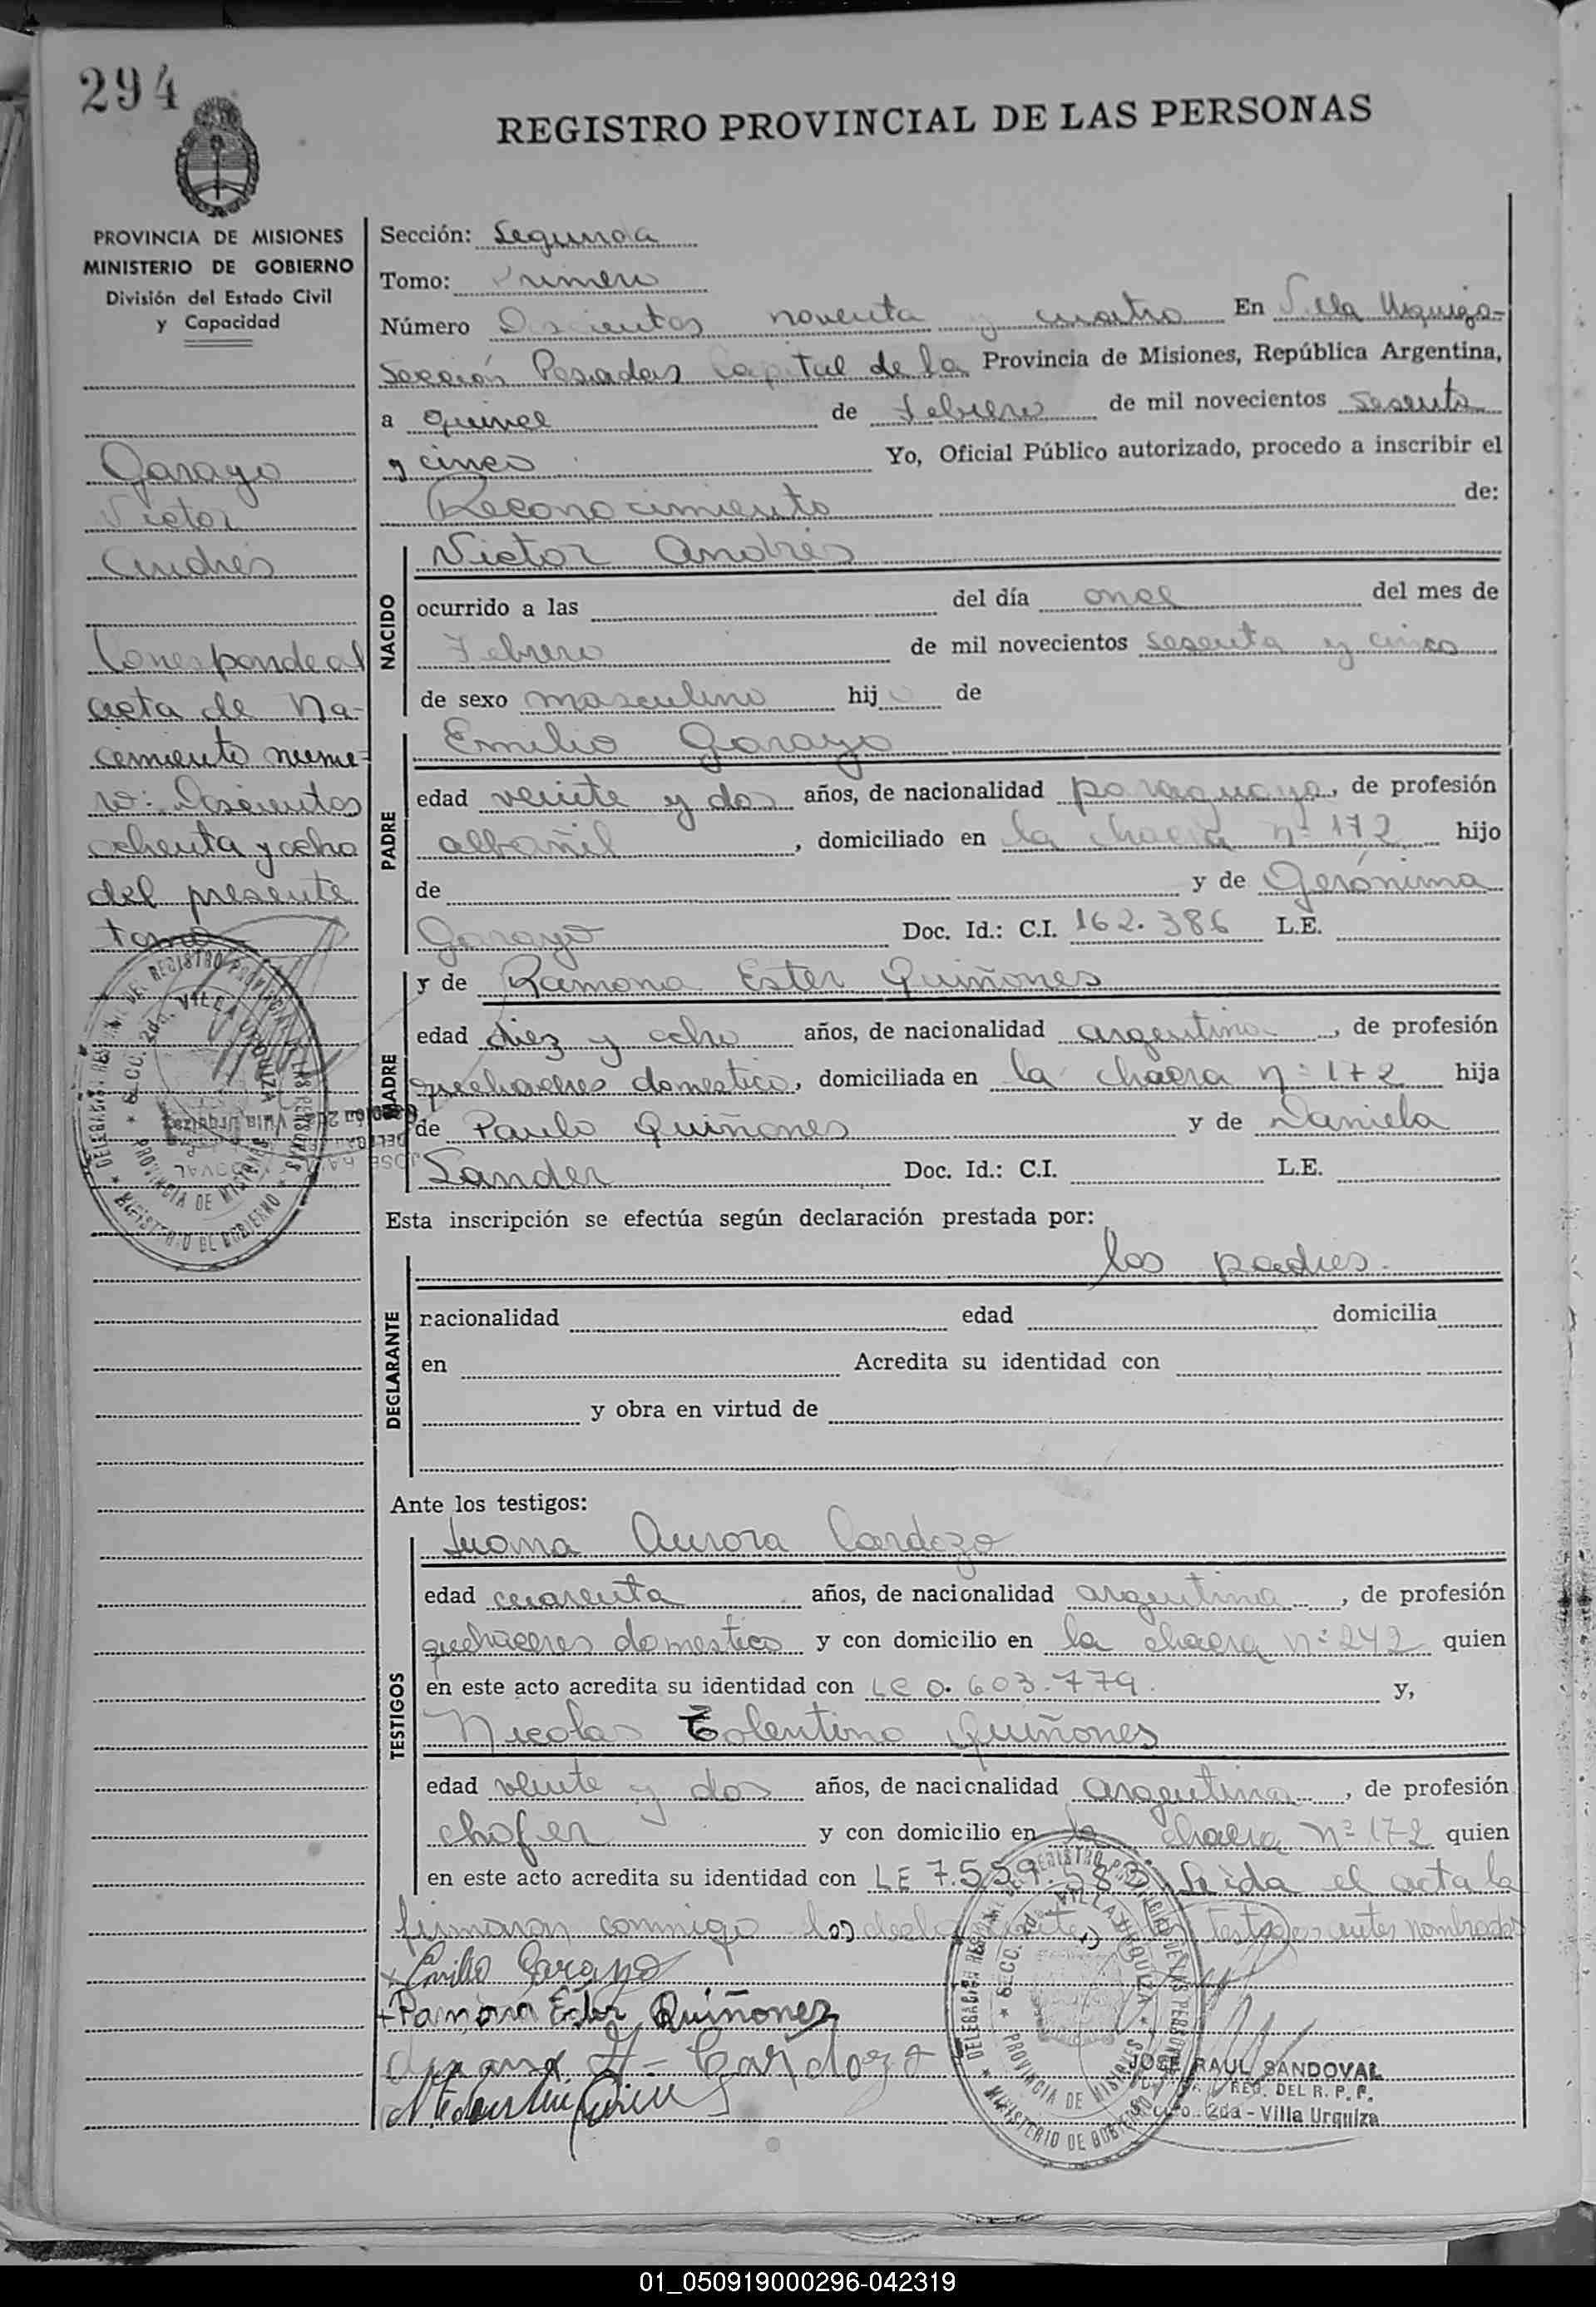 294
REGISTRO PROVINCIAL DE LAS PERSONAS
PROVINCIA DE MISIONES
MINISTERIO DE GOBIERNO
División del Estado Civil
y Capacidad
Garayo
Victor
Andrés
Corresponde al
acta de Na-
cimiento nume-
ro: Doscientos
ochenta y ocho
del presente
tomo
Sección: Segunda
Tomo: Primero
Número Doscientos noventa y cuatro En Villa Urquiza-
Sección Posadas Capital de la Provincia de Misiones, República Argentina,
a quince de Febrero de mil novecientos sesenta
y cinco Yo, Oficial Público autorizado, procedo a inscribir el
Reconocimiento de:
NACIDO
Victor Andrés
ocurrido a las del día once del mes de
Febrero de mil novecientos sesenta y cinco
de sexo masculino hijo de
PADRE
Emilio Garayo
edad veinte y dos años, de nacionalidad paraguaya, de profesión
albañil, domiciliado en la chacra nº 172 hijo
de y de Gerónima
Garayo Doc. Id.: C.I. 162.386 L.E.
MADRE
y de Ramona Ester Quiñones
edad diez y ocho años, de nacionalidad argentina, de profesión
quehaceres domestico, domiciliada en la chacra nº 172 hija
de Paulo Quiñones y de Daniela
Sander Doc. Id.: C.I. L.E.
Esta inscripción se efectúa según declaración prestada por:
DECLARANTE
los padres.
nacionalidad edad domicilia
en Acredita su identidad con
y obra en virtud de
Ante los testigos:
TESTIGOS
Juana Aurora Cardozo
edad cuarenta años, de nacionalidad argentina, de profesión
quehaceres domestico y con domicilio en la chacra nº 242 quien
en este acto acredita su identidad con LC 0.603.779. y,
Nicolas Tolentino Quiñones
edad veinte y dos años, de nacionalidad argentina, de profesión
chofer y con domicilio en la chacra nº 172 quien
en este acto acredita su identidad con LE 7.559.583 Leida el acta la
firmaron conmigo los testigos antes nombrados
Emilio Garayo
Ramona Ester Quiñonez
Cardozo
DELEGACIÓN DEL REGISTRO PROVINCIAL DE LAS PERSONAS
SECC. 2da. VILLA URQUIZA
PROVINCIA DE MISIONES
MINISTERIO DE GOBIERNO
JOSE RAUL SANDOVAL
REG. DEL R. P. P.
2da - Villa Urquiza
01_050919000296-042319